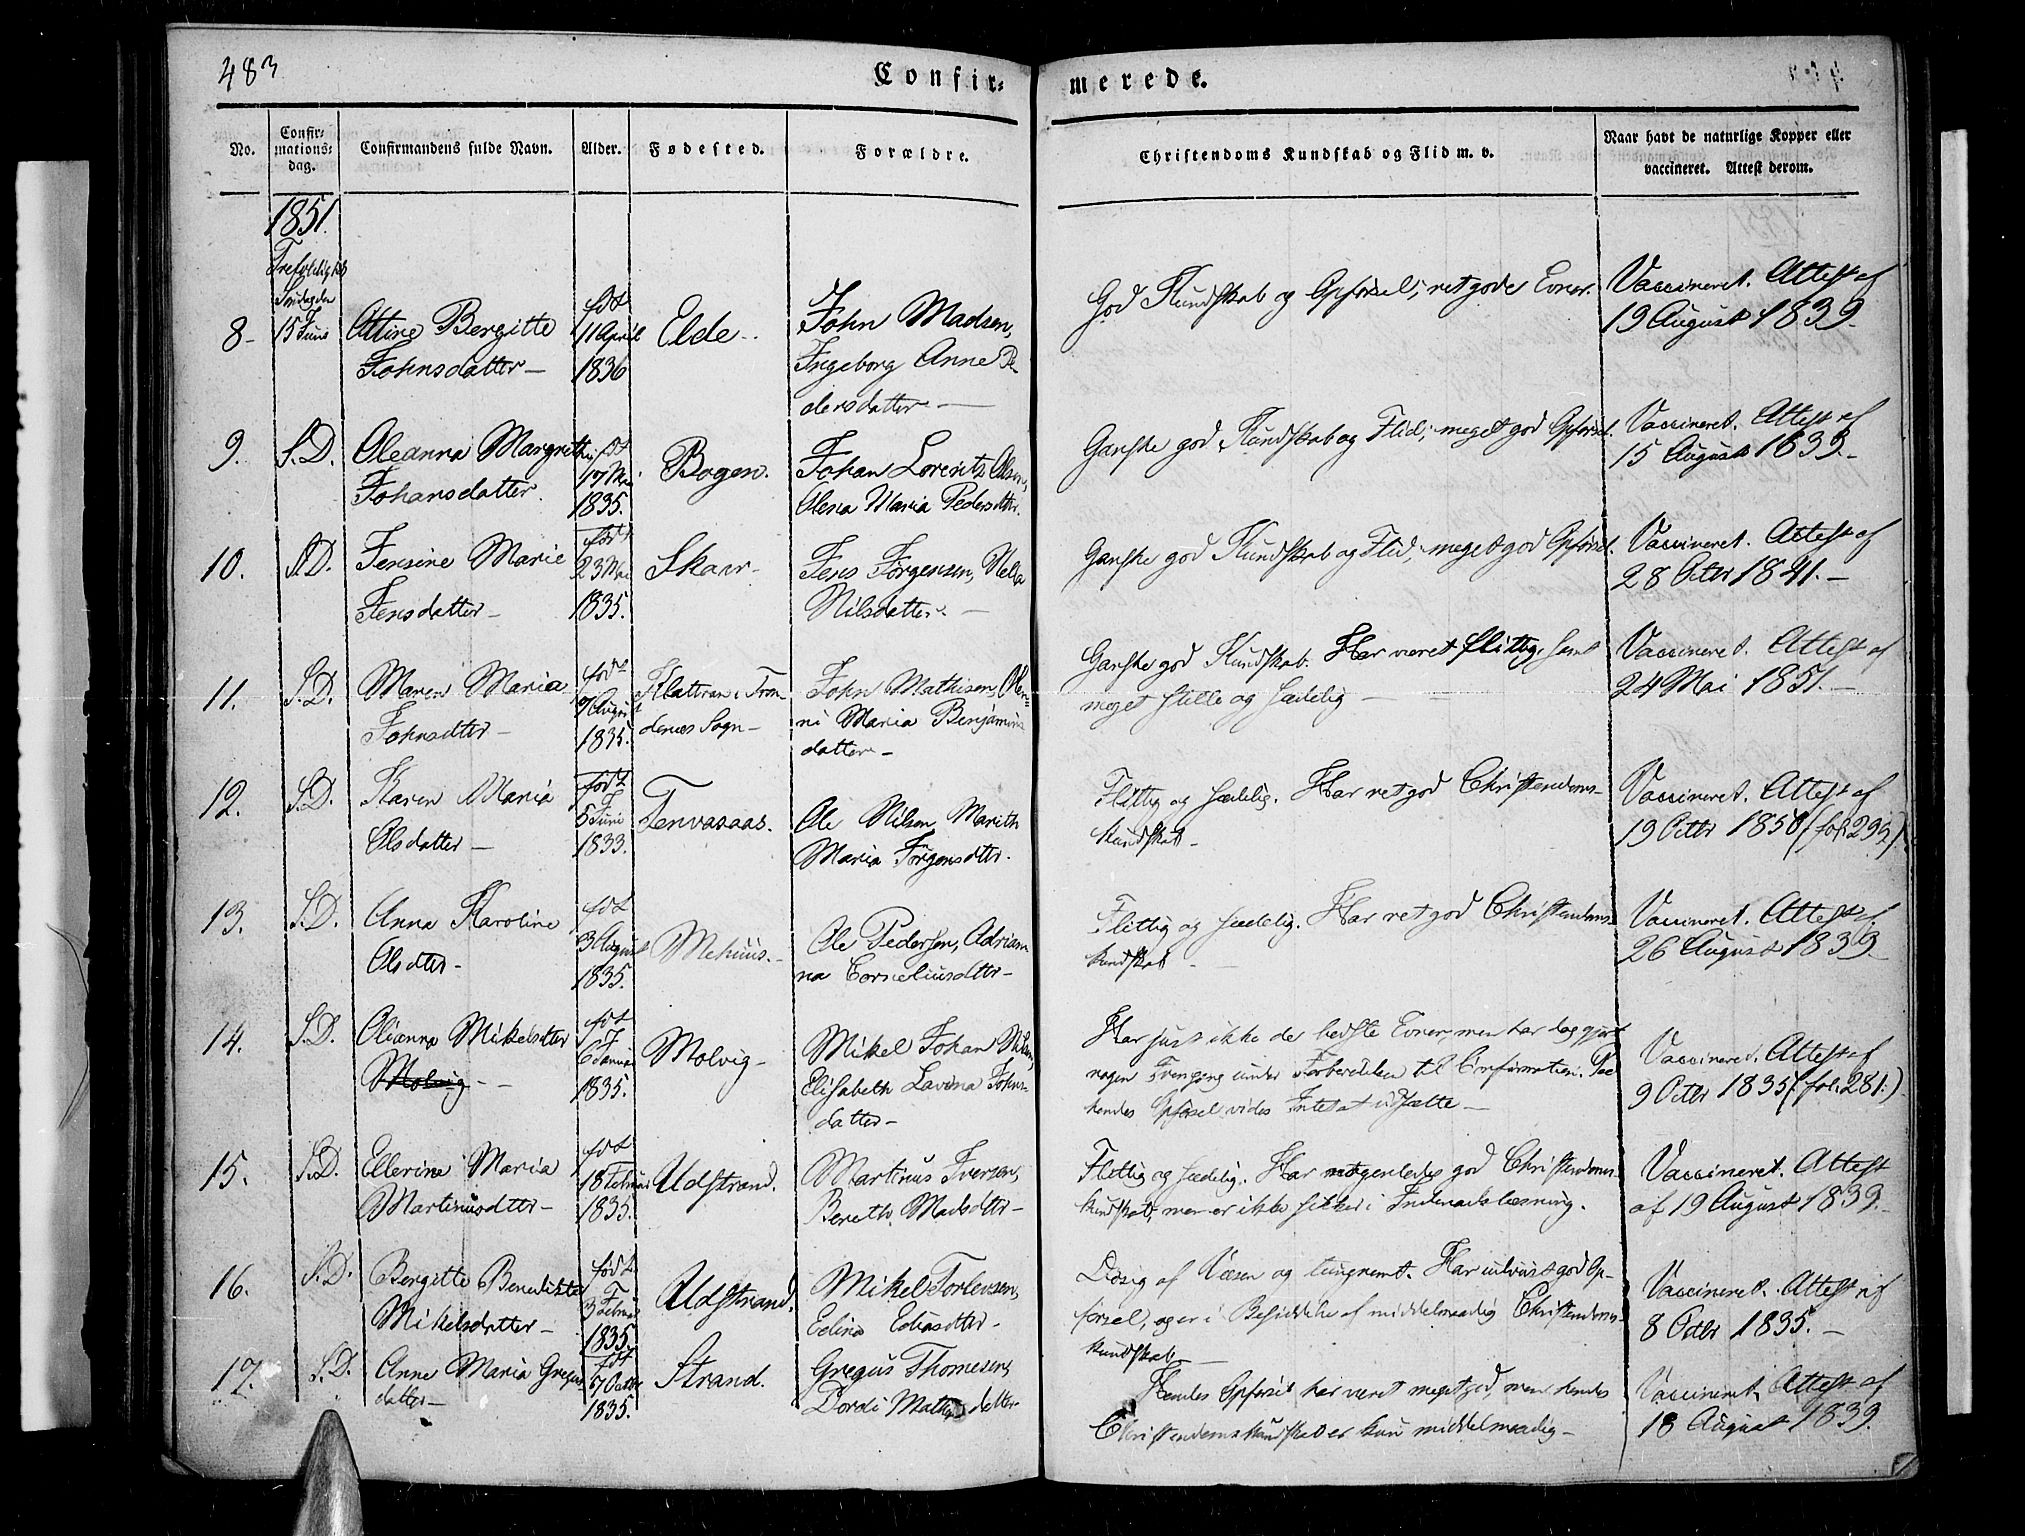 483
Confir=
merede.
No.
Confir=
mations=
dag.
Confirmandens fulde Navn.
Alder.
Fødested.
Forældre.
Christendoms Kundskab og Flid m. v.
Naar havt de naturlige Kopper eller
vaccineret. Attest derom.
1851.
8
15 Juni
Bergitte
Johnsdatter
født
11 April
1836
Elde
John Madsen,
Ingeborg Anne Pe-
dersdatter
God Kundskab og Opførsel; ret gode Evner.
Vaccineret. Attest af
19 August 1839.
9.
S.D.
Oleanna Margrethe
Johansdatter.
født
17 Mai
1835.
Bogen.
Johan Lorents Olsen,
Olena Maria Pedersdtter.
Ganske god Kundskab og Flid; meget god Opførsel.
Vaccineret. Attest af
15 August 1839.
10.
S.D.
Jensine Marie
Jensdatter
født
23 Mai
1835.
Skar
Jens Jørgensen,
Nilsdatter
Ganske god Kundskab og Flid; meget god Opførsel.
Vaccineret. Attest af
28 Octbr 1841.
11.
S.D.
Maren Maria
Johnsdtter
født
August
1835.
Tron-
denæs Sogn
John Mathisen,
Maria Benjamins
datter
Ganske god Kundskab. Har været flittig, samt
meget stille og sædelig
Vaccineret. Attest af
24 Mai 1851.
12.
S.D.
Karen Maria
Olsdatter
født
5 Juni
1833.
Tenvasaas.
Ole Nilsen, Marith
Maria Jørgensdtter.
Flittig og sædelig. Har ret god Christendoms-
kundskab
Vaccineret. Attest af
19 Octbr 1850 (fol. 295)
13.
S.D.
Anna Karoline
Olsdtter
født
3 August
1835.
Mehuus.
Ole Pedersen, Adrian-
na Corneliusdtter
Flittig og sædelig. Har ret god Christendoms-
kundskab
Vaccineret. Attest af
26 August 1839
14.
S.D.
Olianna Mikelsdtter
Molvig
født
6 Januar
1835.
Molvig
Mikel Johan
Elisabeth Lavina Johns-
datter
Har just ikke de bedste Evner, men har dog gjort
nogen Fremgang under Forberedelsen til Confirmationen. Paa
hendes Opførsel vides Intet at udsætte
Vaccineret. Attest af
9 Octbr 1835 (fol. 281.)
15.
S.D.
Ellerine Maria
Martinusdtter
født
18 Februar
1835.
Udstrand.
Martinus Iversen,
Bereth Madsdtter
Flittig og sædelig. Har nogenledes god Christendoms-
kundskab, men er ikke sikker i Indenadslæsning.
Vaccineret. Attest
af 19 August 1839.
16.
S.D.
Bergitte Benedikte
Mikelsdatter
født
3 Februar
1835.
Udstrand.
Mikel Torlevsen,
Edina Eliasdtter
Ladsig af Væsen og tungnemt. Har udvist god Op-
førsel, og er i Besiddelse af middelmaadig Christendoms-
kundskab
Vaccineret. Attest af
8 Octbr 1835.
17.
S.D.
Anne Maria Gregus
datter
født
17 Octbr
1835.
Strand.
Gregus Thomesen,
Dordi datter
Hendes Opførsel har været meget god, men hendes
Christendomskundskab er kun middelmaadig
Vaccineret. Attest af
18 August 1839.